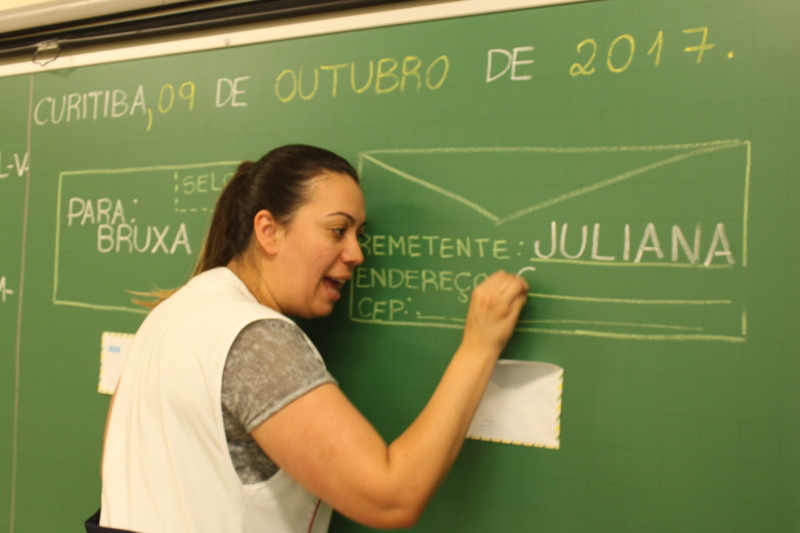 CURITIBA, 09 DE OUTUBRO DE 2017.
PARA:
BRUXA
REMETENTE: JULIANA
ENDEREÇO
CEP: